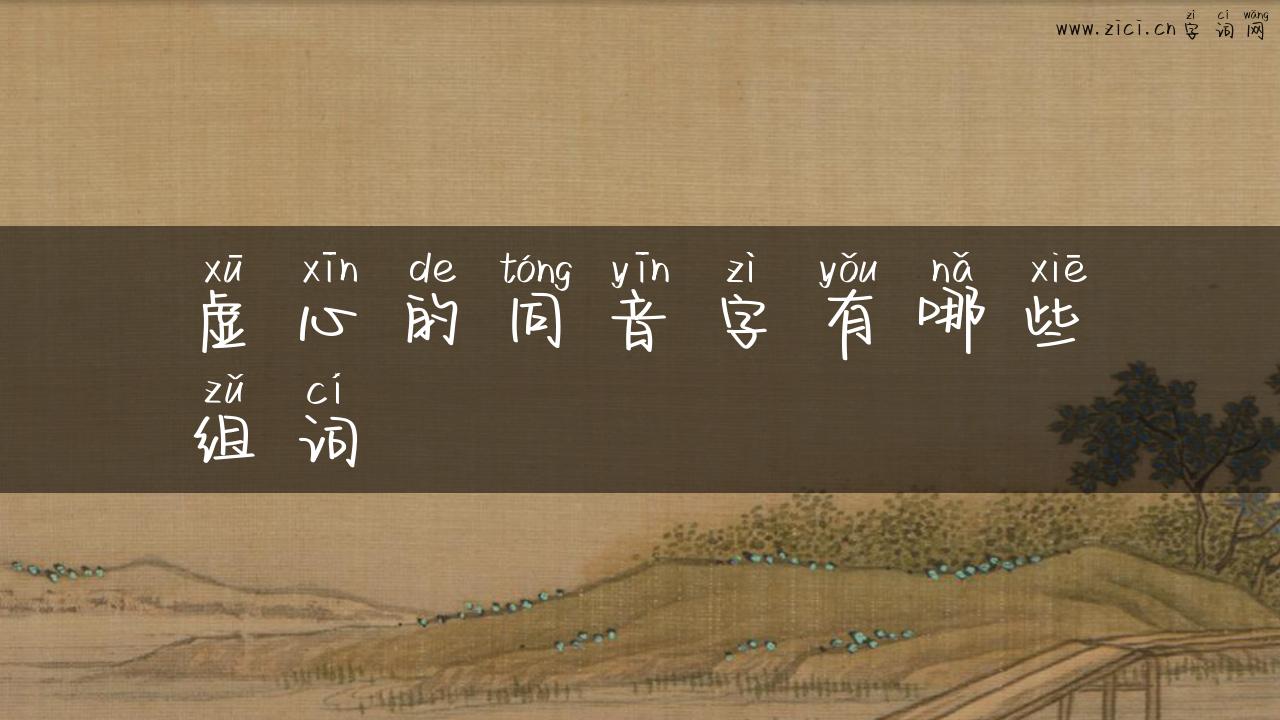 zì cí wǎng
www.zici.cn 字词网
xū xīn de tóng yīn zì yǒu nǎ xiē
虚心的同音字有哪些
zǔ cí
组词